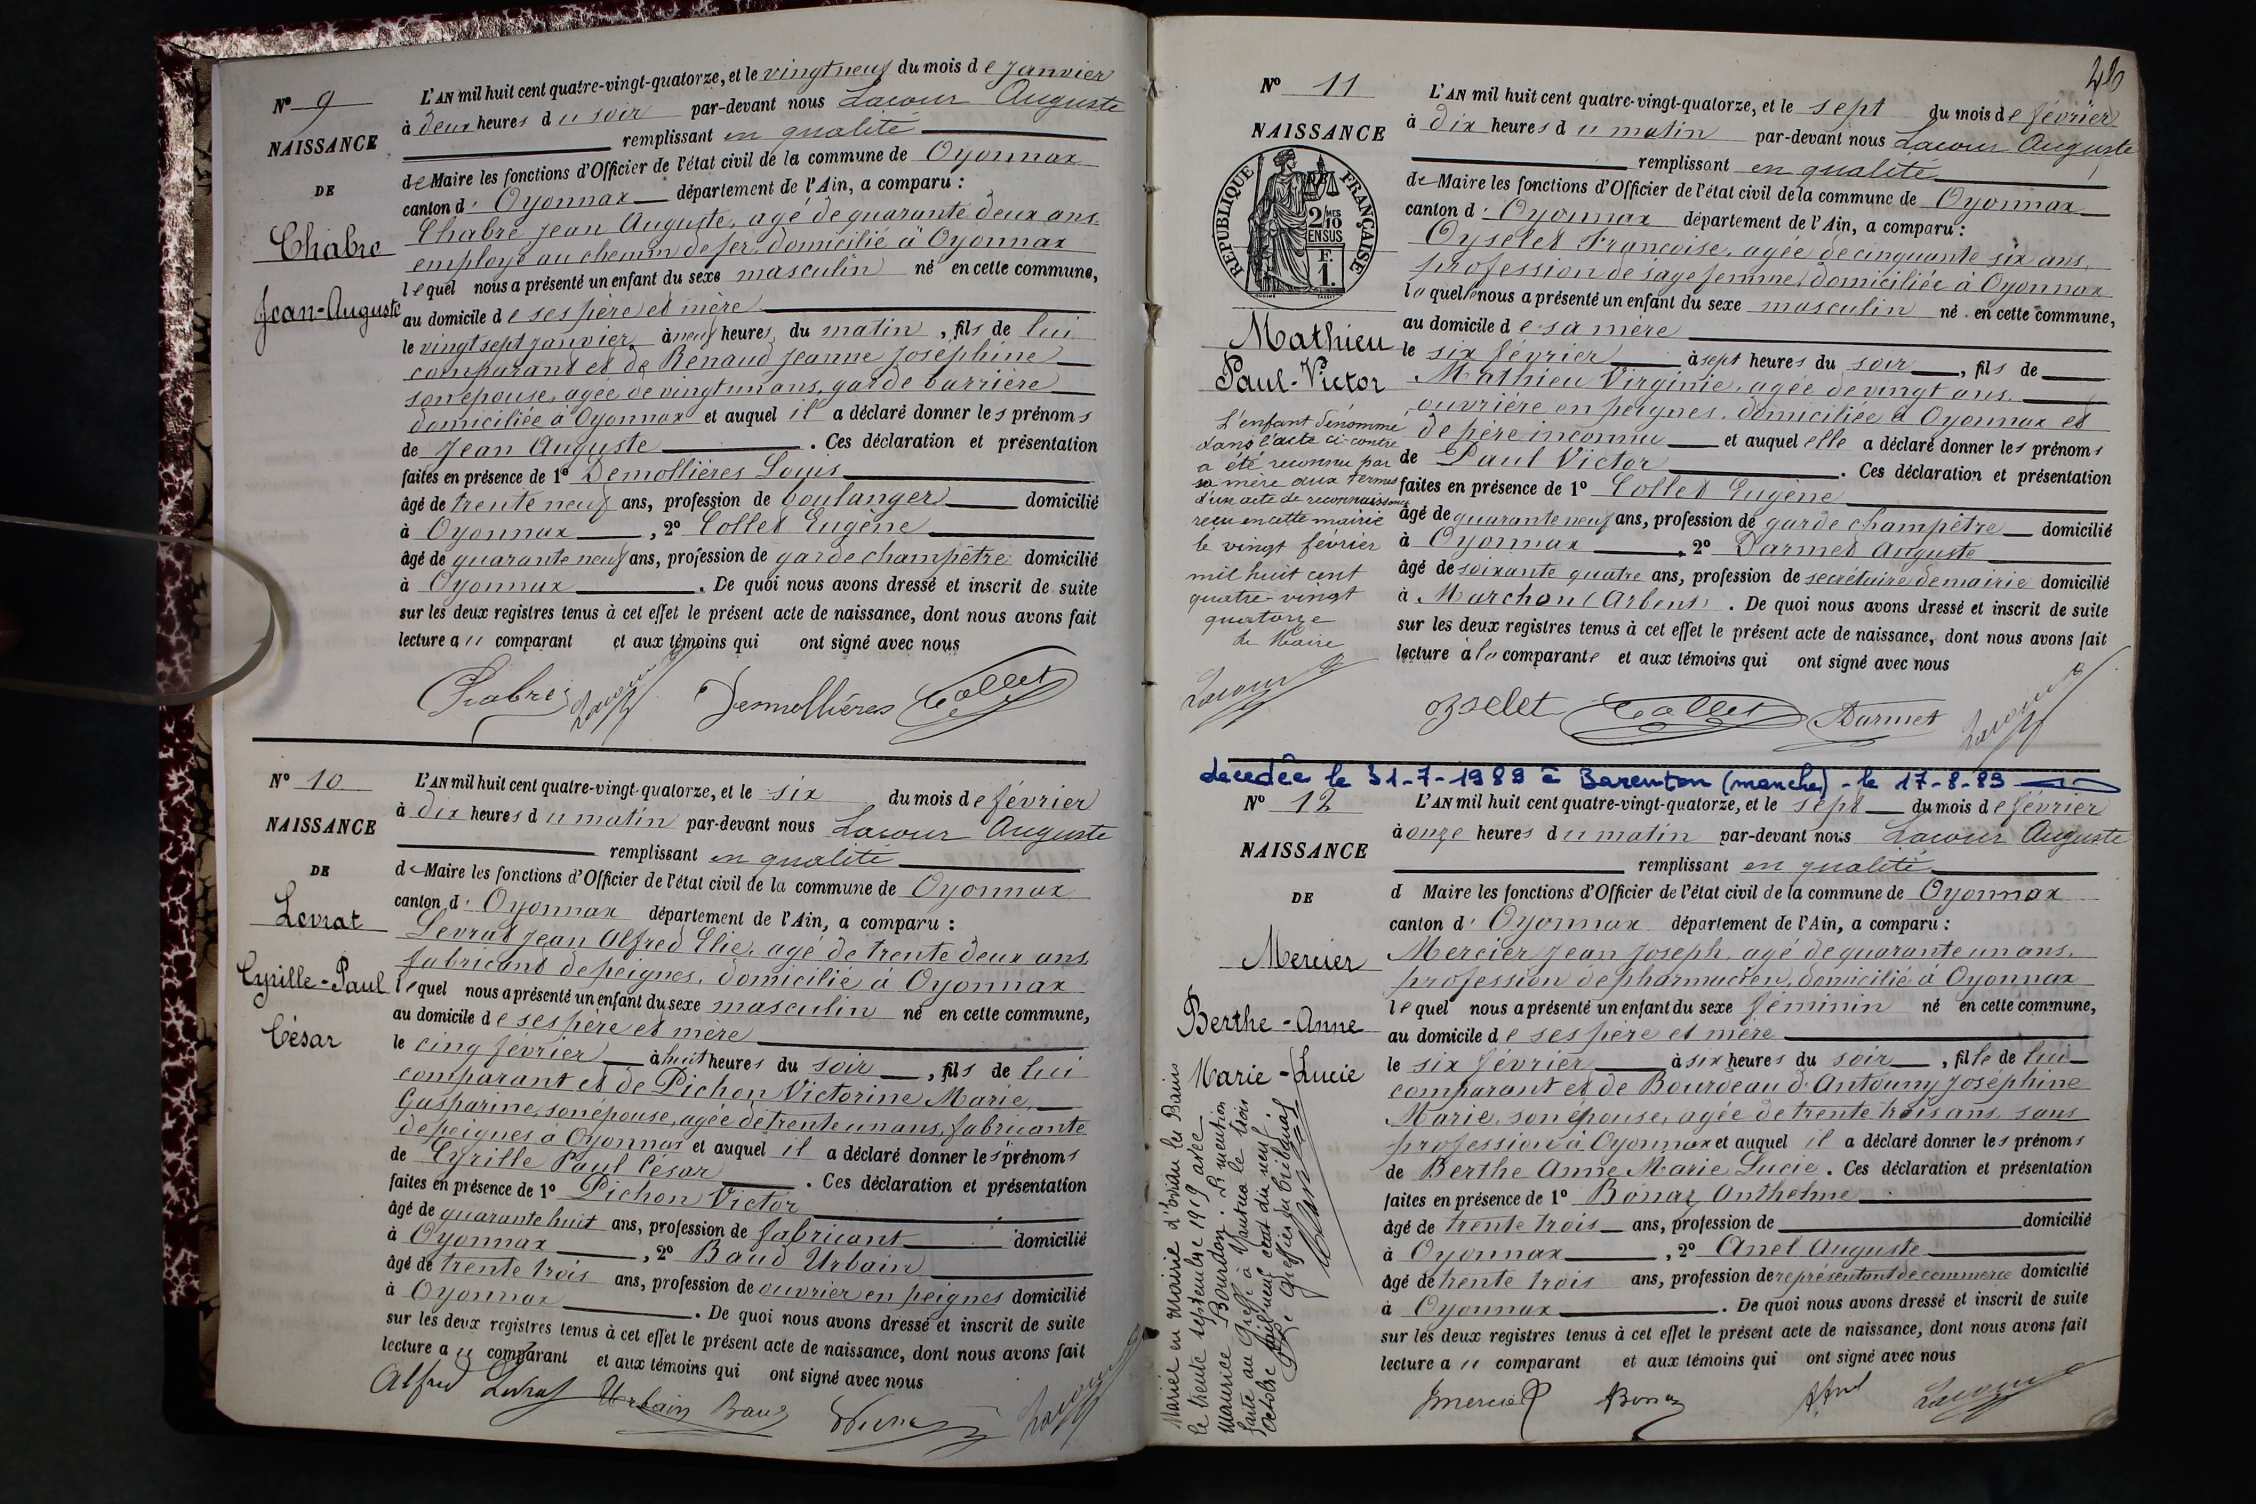 N° 9
NAISSANCE
DE
Chabre
Jean-Auguste
L'AN mil huit cent quatre-vingt-quatorze, et le vingt neuf du mois de janvier
à deux heures du soir par-devant nous Lacour Auguste
remplissant en qualité
de Maire les fonctions d'Officier de l'état civil de la commune de Oyonnax
canton d'Oyonnax département de l'Ain, a comparu :
Chabre Jean Auguste, agé de quarante deux ans
employé au chemin de fer, domicilié à Oyonnax
lequel nous a présenté un enfant du sexe masculin né en cette commune,
au domicile de ses père et mère
le vingt sept janvier, à neuf heures du matin, fils de lui
comparant et de Renaud Jeanne Joséphine
son épouse, agée de vingt un ans, garde barrière
domiciliée à Oyonnax et auquel il a déclaré donner les prénoms
de Jean Auguste. Ces déclaration et présentation
faites en présence de 1° Demollières Louis
âgé de trente neuf ans, profession de boulanger domicilié
à Oyonnax, 2° Collet Eugène
âgé de quarante neuf ans, profession de garde champêtre domicilié
à Oyonnax. De quoi nous avons dressé et inscrit de suite
sur les deux registres tenus à cet effet le présent acte de naissance, dont nous avons fait
lecture au comparant et aux témoins qui ont signé avec nous
Chabre Lacour Demollières Collet
N° 10
NAISSANCE
DE
Levrat
Cyrille-Paul
César
L'AN mil huit cent quatre-vingt-quatorze, et le six du mois de février
à dix heures du matin par-devant nous Lacour Auguste
remplissant en qualité
de Maire les fonctions d'Officier de l'état civil de la commune de Oyonnax
canton d'Oyonnax département de l'Ain, a comparu :
Levrat Jean Alfred Elie, agé de trente deux ans
fabricant de peignes, domicilié à Oyonnax
lequel nous a présenté un enfant du sexe masculin né en cette commune,
au domicile de ses père et mère
le cinq février à huit heures du soir, fils de lui
comparant et de Pichon Victorine Marie
Gasparine, son épouse, agée de trente un ans, fabricante
de peignes à Oyonnax et auquel il a déclaré donner les prénoms
de Cyrille Paul César. Ces déclaration et présentation
faites en présence de 1° Pichon Victor
âgé de quarante huit ans, profession de fabricant domicilié
à Oyonnax, 2° Baud Urbain
âgé de trente trois ans, profession de ouvrier en peignes domicilié
à Oyonnax. De quoi nous avons dressé et inscrit de suite
sur les deux registres tenus à cet effet le présent acte de naissance, dont nous avons fait
lecture au comparant et aux témoins qui ont signé avec nous
Alfred Levrat Urbain Baud Lacour
N° 11
NAISSANCE
DE
REPUBLIQUE FRANÇAISE
2/10MES
EN SUS
F.
1.
Mathieu
Paul-Victor
L'enfant dénommé
dans l'acte ci-contre
a été reconnu par
sa mère aux termes
d'un acte de reconnaissance
reçu en cette mairie
le vingt février
mil huit cent
quatre-vingt
quatorze
Le Maire
Lacour
L'AN mil huit cent quatre-vingt-quatorze, et le sept du mois de février
à dix heures du matin par-devant nous Lacour Auguste
remplissant en qualité
de Maire les fonctions d'Officier de l'état civil de la commune de Oyonnax
canton d'Oyonnax département de l'Ain, a comparu :
Oyselet Françoise, agée de cinquante six ans,
profession de sage femme, domiciliée à Oyonnax
laquelle nous a présenté un enfant du sexe masculin né en cette commune,
au domicile de sa mère
le six février à sept heures du soir, fils de
Mathieu Virginie, agée de vingt ans,
ouvrière en peignes, domiciliée à Oyonnax et
de père inconnu et auquel elle a déclaré donner les prénoms
de Paul Victor. Ces déclaration et présentation
faites en présence de 1° Collet Eugène
âgé de quarante neuf ans, profession de garde champêtre domicilié
à Oyonnax, 2° Darmet Auguste
âgé de soixante quatre ans, profession de secrétaire de mairie domicilié
à Marchon (Arbent). De quoi nous avons dressé et inscrit de suite
sur les deux registres tenus à cet effet le présent acte de naissance, dont nous avons fait
lecture à la comparante et aux témoins qui ont signé avec nous
Oyselet Collet Darmet Lacour
décédée le 31-7-1989 à Barenton (manche) - le 17-8-89
N° 12
NAISSANCE
DE
Mercier
Berthe-Anne
Marie-Lucie
Mariée en mairie d'Evian les Bains
le trente septembre 1919 avec
Maurice Bourdon. Mention
faite au Greffe à Nantua le trois
octobre mil neuf cent dix neuf
Le Greffier du tribunal
L'AN mil huit cent quatre-vingt-quatorze, et le sept du mois de février
à onze heures du matin par-devant nous Lacour Auguste
remplissant en qualité
d Maire les fonctions d'Officier de l'état civil de la commune de Oyonnax
canton d'Oyonnax département de l'Ain, a comparu :
Mercier Jean Joseph, agé de quarante un ans,
profession de pharmacien, domicilié à Oyonnax
lequel nous a présenté un enfant du sexe féminin né en cette commune,
au domicile de ses père et mère
le six février à six heures du soir, fille de lui
comparant et de Bourdeau d'Antouny Joséphine
Marie, son épouse, agée de trente trois ans, sans
profession à Oyonnax et auquel il a déclaré donner les prénoms
de Berthe Anne Marie Lucie. Ces déclaration et présentation
faites en présence de 1° Bonaz Anthelme
âgé de trente trois ans, profession de domicilié
à Oyonnax, 2° Anel Auguste
âgé de trente trois ans, profession de représentant de commerce domicilié
à Oyonnax. De quoi nous avons dressé et inscrit de suite
sur les deux registres tenus à cet effet le présent acte de naissance, dont nous avons fait
lecture au comparant et aux témoins qui ont signé avec nous
Jmercier Bonaz A Anel Lacour